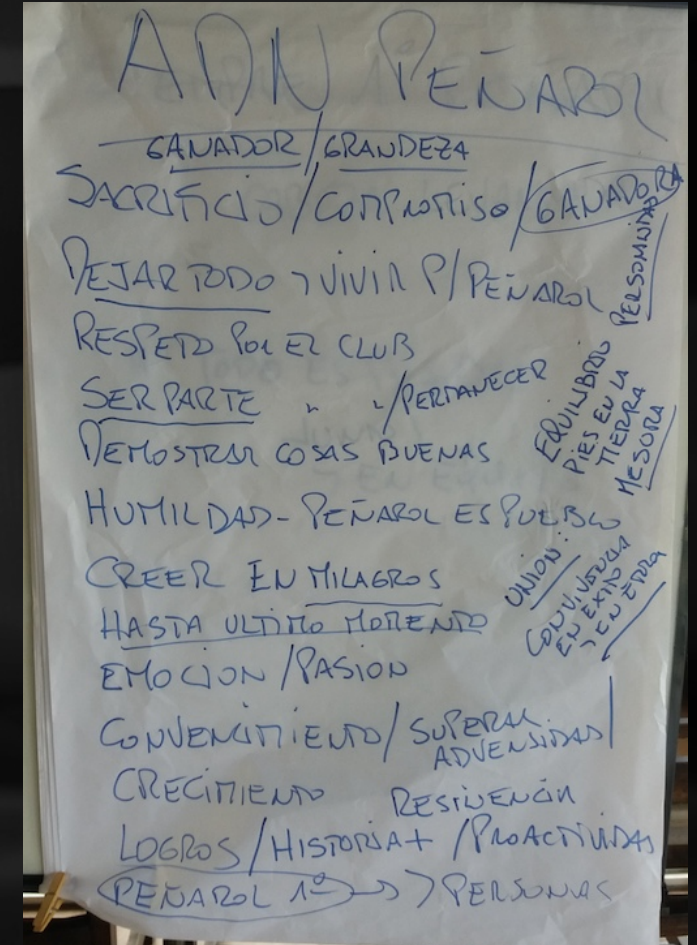 ADN PEÑAROL
GANADOR/GRANDEZA
SACRIFICIO/COMPROMISO/GANADORA
PERSONALIDAD
DEJAR TODO Y VIVIR P/PEÑAROL
RESPETO POR EL CLUB
SER PARTE " "/PERTENECER
DEMOSTRAR COSAS BUENAS
EQUILIBRIO:
PIES EN LA
TIERRA
MESURA
HUMILDAD - PEÑAROL ES PUEBLO
CREER EN MILAGROS
UNION:
CONVIVENCIA
EN EXITO
Y EN
HASTA ULTIMO MOMENTO
EMOCION/PASION
CONVENCIMIENTO/SUPERAR
ADVERSIDAD
CRECIMIENTO RESILIENCIA
LOGROS/HISTORIA+/PROACTIVIDAD
PEÑAROL 1º → > PERSONAS